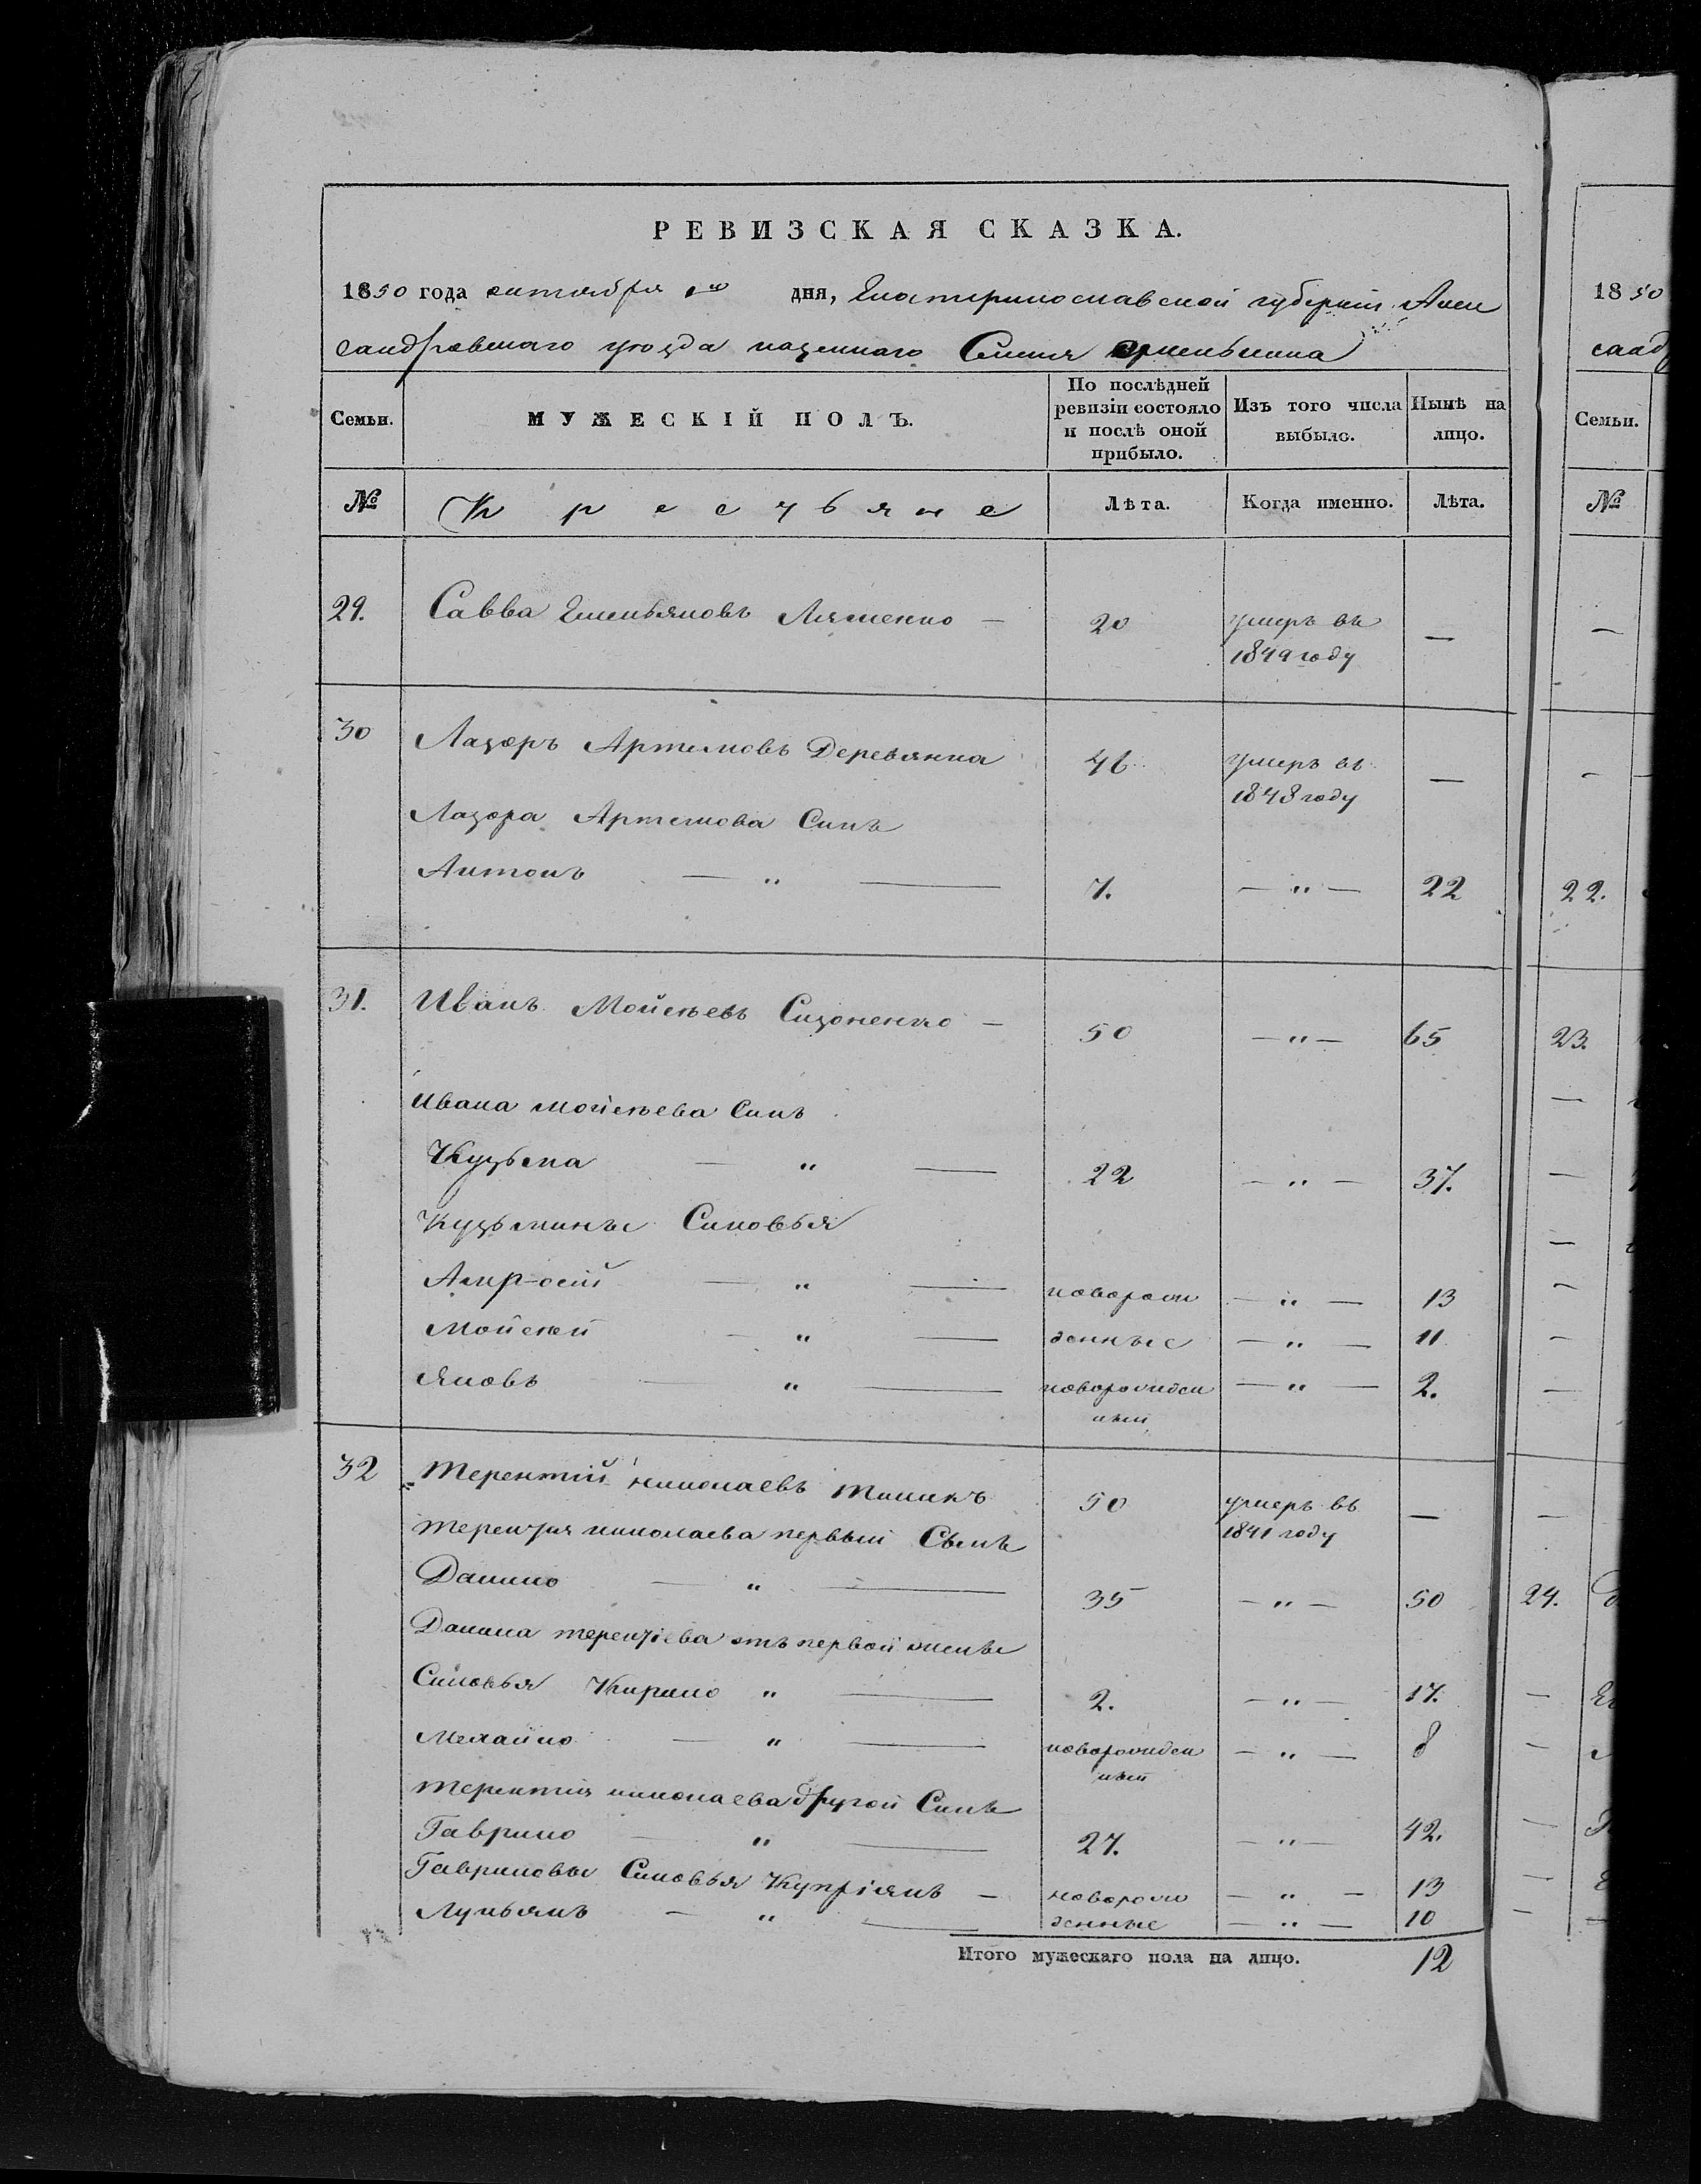 РЕВИЗСКАЯ СКАЗКА.
1850 года октября дня, Екатеринославской губерніи Алек
сандровскаго уезда казеннаго Селенія
Семьи. МУЖЕСКІЙ ПОЛЪ. По послѣдней ревизіи состояло и послѣ оной прибыло. Изъ того числа выбыло. Нынѣ на лицо.
№ Крестьяне Лѣта. Когда именно. Лѣта.
29. Савва Емельяновъ Ляшенко — 20 умеръ въ 1849 году —
30 Лазоръ Артемовъ Деревянка 46 умеръ въ 1848 году —
Лазора Артемова Синъ
Антонъ — " — 7. — " — 22
31. Иванъ Мойсѣевъ Сизоненко — 50 — " — 65
Ивана Мойсѣева Синъ
Кузьма — " — 22 — " — 37.
Кузьмины Синовья
Амросій — " — новорож — " — 13
Мойсей — " — денные — " — 11
Яковъ — " — новорожден ный — " — 2.
32 Терентій Николаевъ 50 умеръ въ 1841 году —
Терентія Николаева первый Сынъ
Данило — " — 35 — " — 50
Данила терентіева отъ первой жены
Синовья Кирило " — 2. — " — 17.
Михайло — " — новорожден ный — " — 8
Терентія николаева другой Синъ
Гаврило — " — 27. — " — 42.
Гавриловы Синовья Купріянъ — новорож — " — 13
Лукьянъ — " — денные — " — 10
Итого мужескаго пола на лицо. 12
1850
Семьи.
№
22.
23.
24.